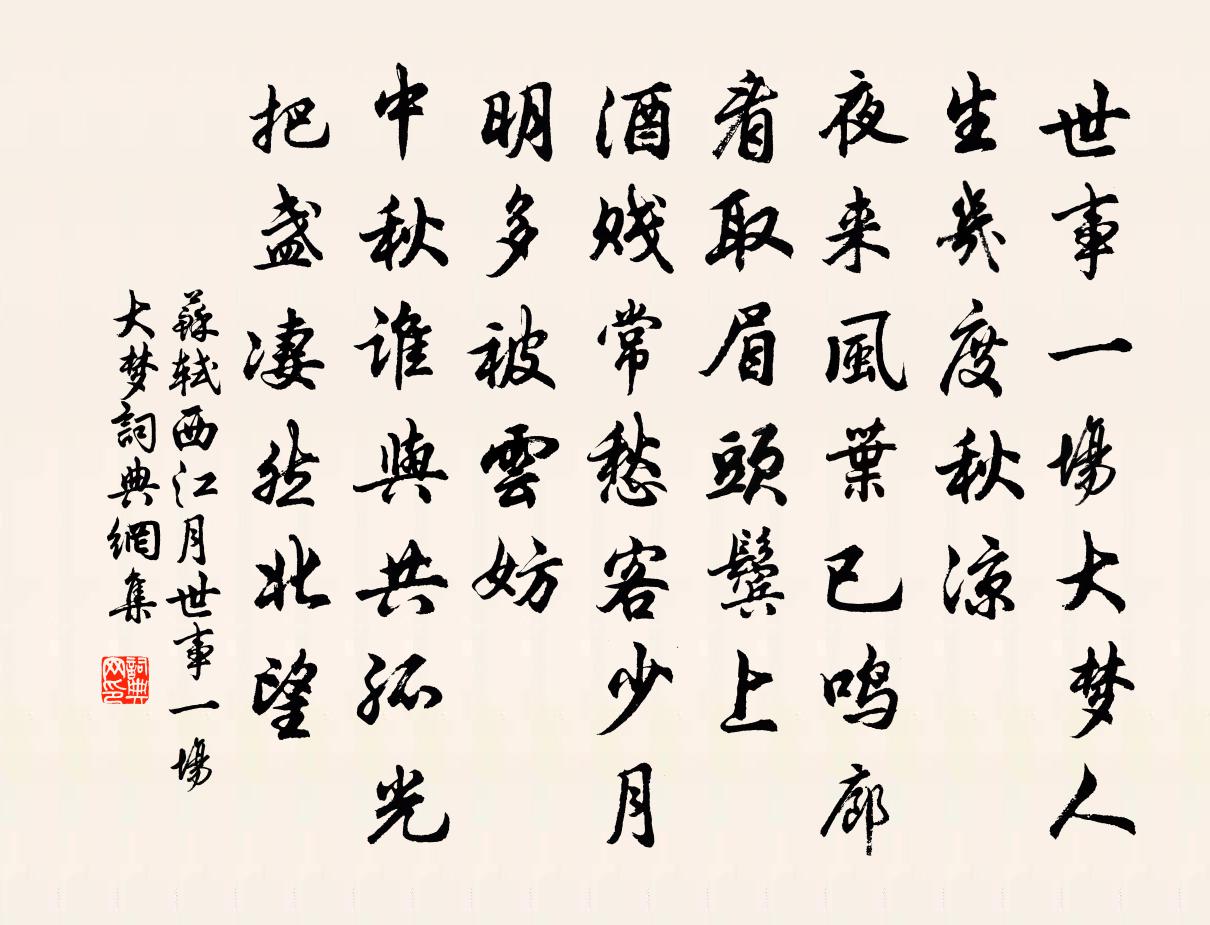 世事一場大梦人
生幾度秋凉
夜来風葉已鸣廊
看取眉頭鬓上
酒贱常愁客少月
明多被雲妨
中秋誰與共孤光
把盏凄然北望
蘇轼西江月世事一場
大梦詞典網集
詞典
网印